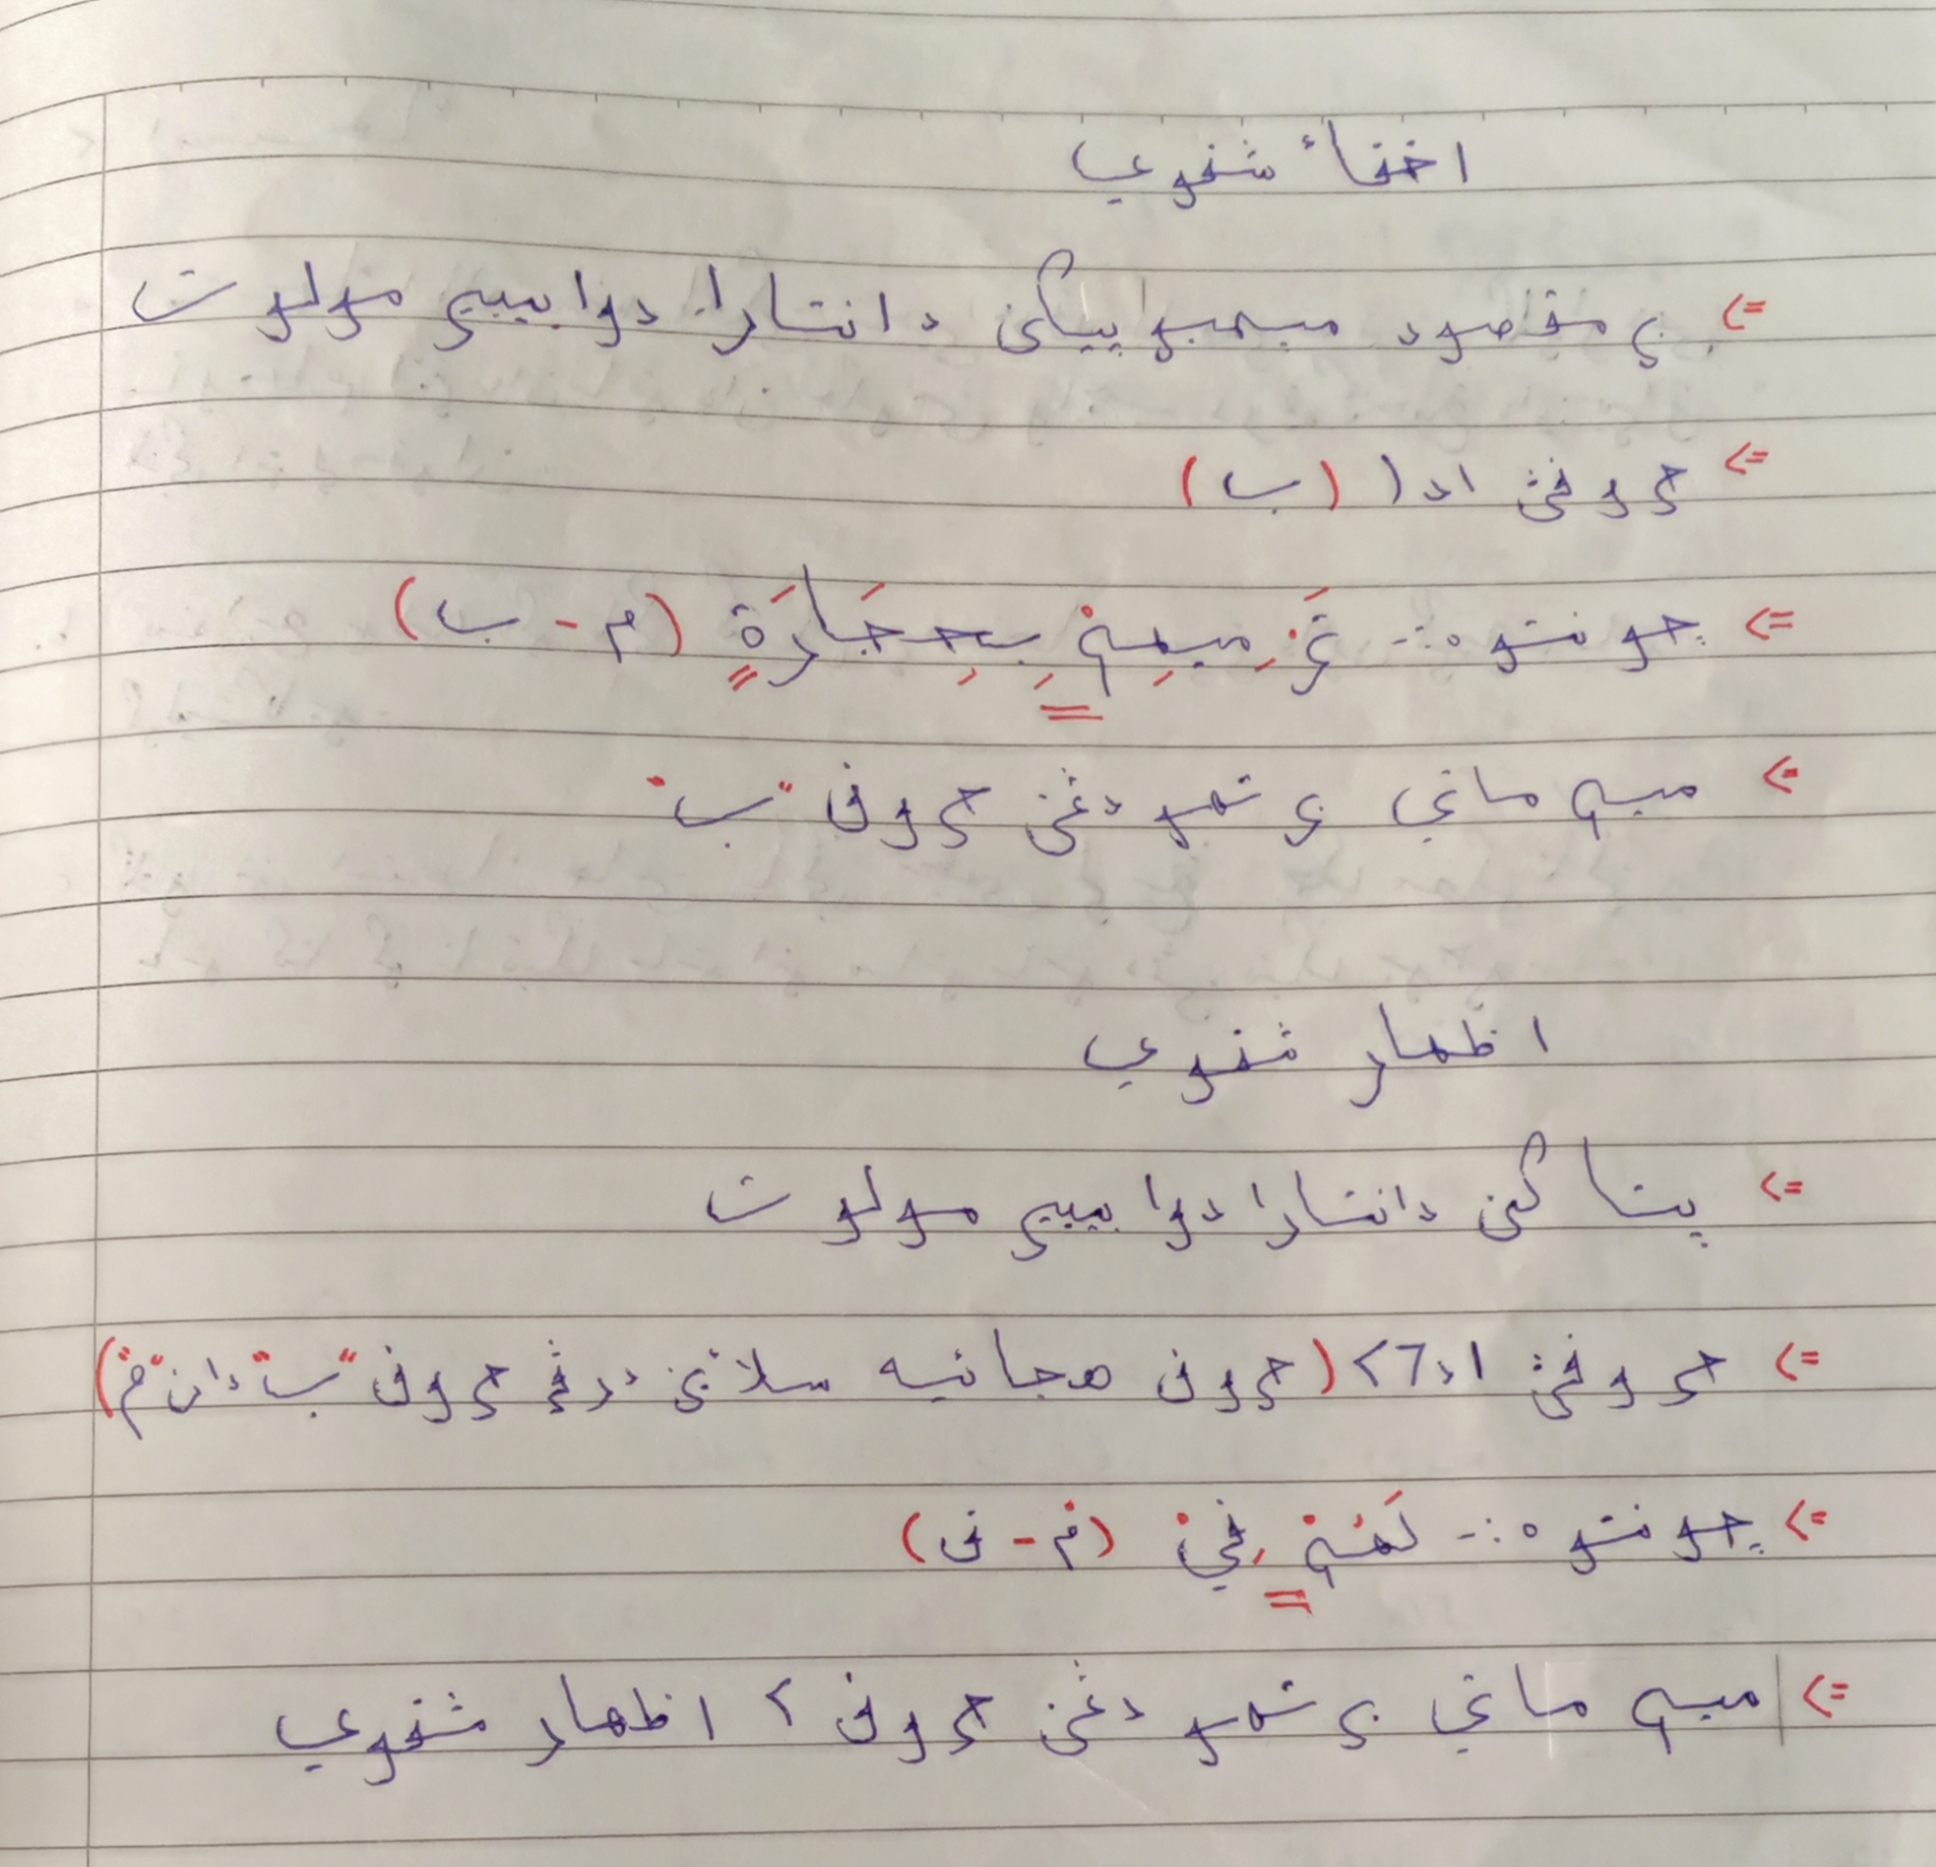 اخفاء شفوي
=> يڠ مقصود ميمبوڽيكن دانتارا دوا بيبير مولوت
=> حروفڽ اد ١ (ب)
=> چونتوه :- تَرْمِيهِمْ بِحِجَارَةٍ (م - ب)
=> ميم ماتي برتمو دڠن حروف "ب"
اظهار شفوي
=> ڽتاكن دانتارا دوا بيبير مولوت
=> حروفڽ اد ٢٦ (حروف هجائيه سلاٴين درڤد حروف "ب" دان "م")
=> چونتوه :- لَهُمْ فِيْ (م - ف)
=> ميم ماتي برتمو دڠن حروف ٢ اظهار شفوي